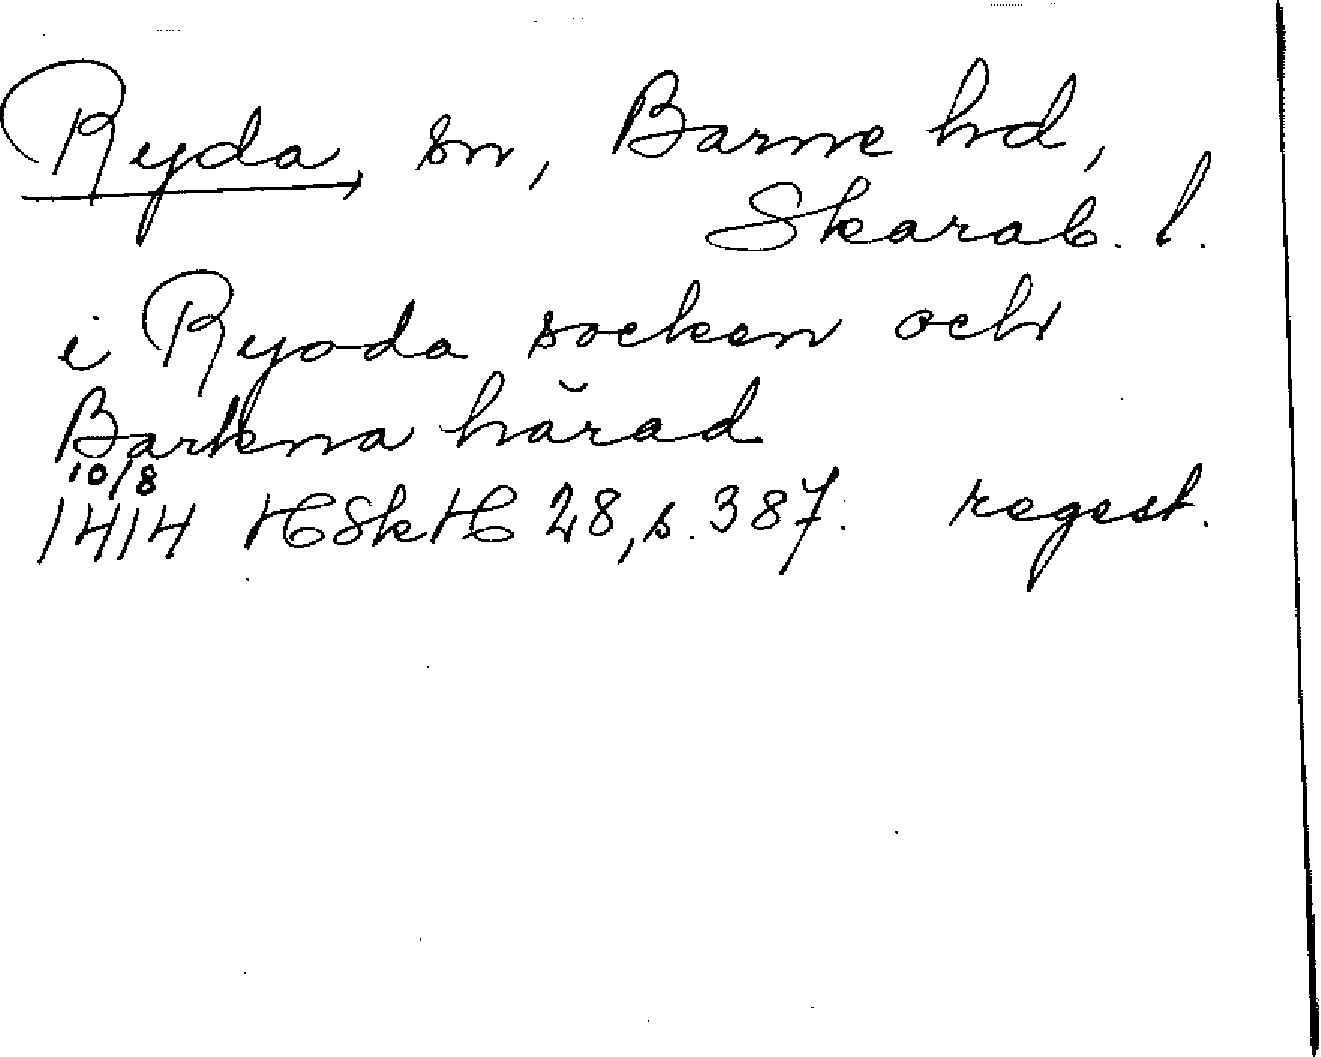 Ryda, sn, Barne hd,
Skarab. l.
i Ryoda socken och
Barkna härad
10/8
1414 HSkH 28, s. 387. regest.